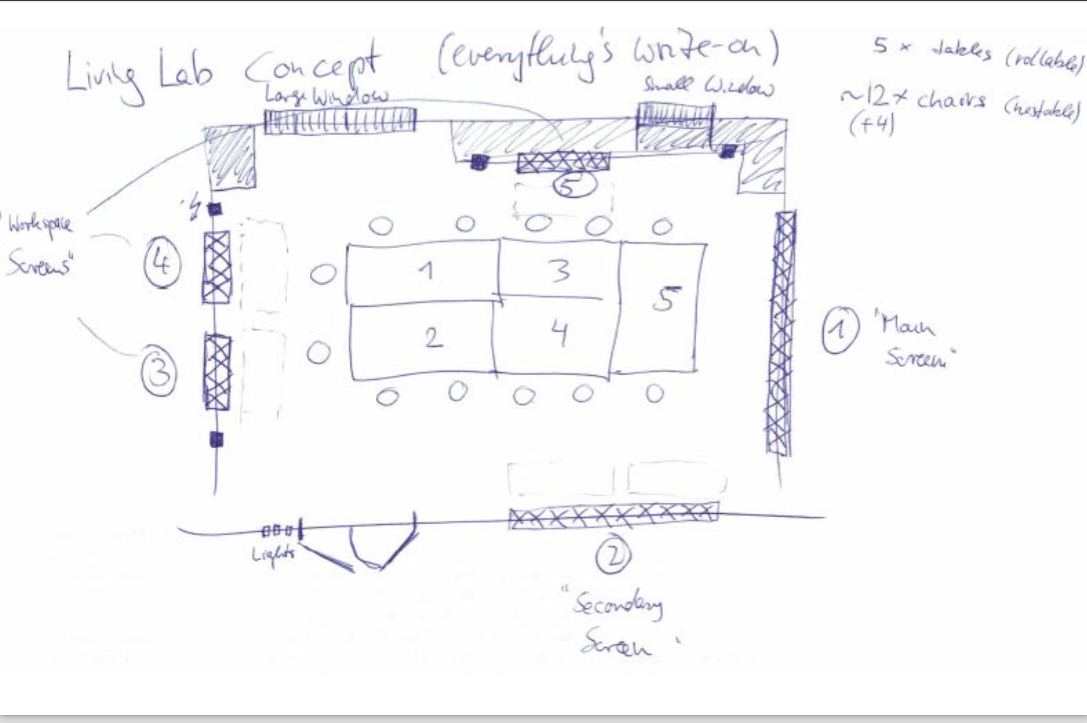 Living Lab Concept (everything's write-on)
5 x tables (rollable)
~12 x chairs (nestable)
(+4)
Large Window
Small Window
"Workspace
Screens"
5
4
3
1
3
5
2
4
1
"Main
Screen"
Lights
2
"Secondary
Screen"